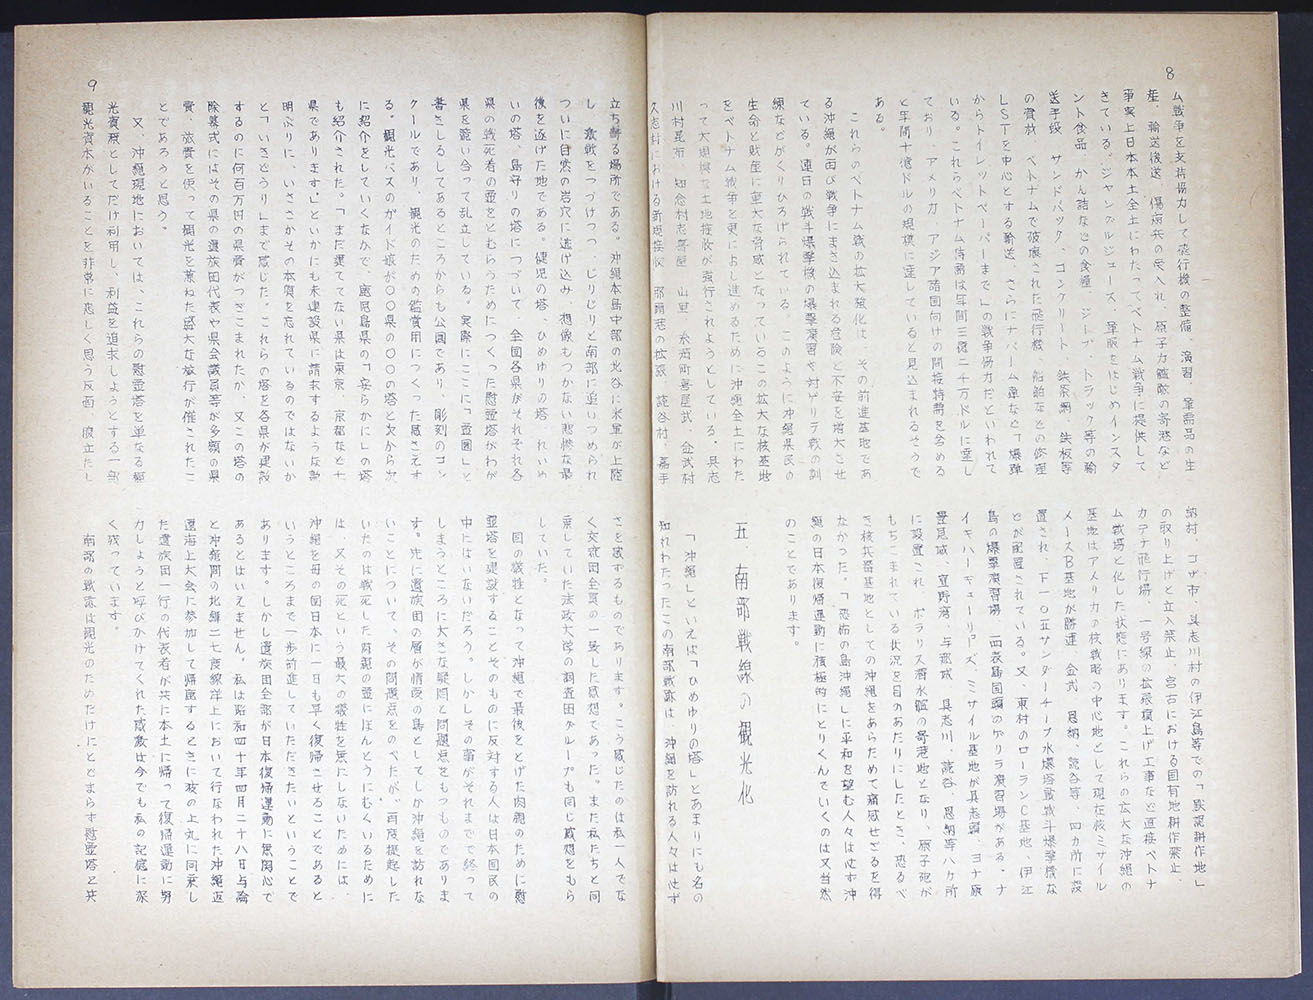 8
ム戦争を支持協力して飛行機の整備、演習、軍需品の生
産、輸送後送、傷病兵の受入れ、原子力艦隊の寄港など
事実上日本本土全土にわたってベトナム戦争に提供して
きている。ジャングルシューズ、軍服をはじめインスタ
ント食品、かん詰などの食糧、ジープ、トラック等の輸
送手段、サンドバック、コンクリート、鉄条網、鉄板等
の資材、ベトナムで破壊された飛行機、船舶などの修理
LSTを中心とする輸送、さらにナパーム弾など「爆弾
からトイレットペーパーまで」の戦争協力だといわれて
いる。これらベトナム特需は年間三億二千万ドルに達し
ており、アメリカ、アジア諸国向けの間接特需を含める
と年間十億ドルの規模に達していると見込まれるそうで
ある。
これらのベトナム戦の拡大強化は、その前進基地であ
る沖縄が再び戦争にまき込まれる危険と不安を増大させ
ている。連日の戦斗爆撃機の爆撃演習や対ゲリラ戦の訓
練などがくりひろげられている。このように沖縄県民の
生命と財産に重大な脅威となっているこの拡大な核基地
をベトナム戦争を更におし進めるために沖縄全土にわた
って大規模な土地接収が強行されようとしている。具志
川村昆布、知念村志喜屋、山里、糸満町喜屋武、金武村
久志村における新規接収、那覇港の拡張、読谷村、嘉手
納村、コザ市、具志川村の伊江島等での「黙認耕作地」
の取り上げと立入禁止、宮古における国有地耕作禁止、
カデナ飛行場、一号線の拡張積上げ工事など直接ベトナ
ム戦場と化した状態にあります。これらの広大な沖縄の
基地はアメリカの核戦略の中心地として現在核ミサイル
メースB基地が勝連、金武、恩納、読谷等、四カ所に設
置され、F一〇五サンダーチーフ水爆搭載戦斗爆撃機な
どが配置されている。又、東村のボーランC基地、伊江
島の爆撃演習場、西表島国頭のゲリラ演習場がある。ナ
イキハーキュリーズ、ミサイル基地が具志頭、ヨナ原
豊見城、宜野湾、与那城、具志川、読谷、恩納等八ケ所
に設置され、ポラリス潜水艦の寄港地となり、原子砲が
もちこまれている状況を目のあたりにしたとき、恐るべ
き核兵器基地としての沖縄をあらためて痛感せざるを得
なかった。「恐怖の島沖縄」に平和を望む人々は必ず沖
縄の日本復帰運動に積極的にとりくんでいくのは又当然
のことであります。
五、南部戦線の観光化
「沖縄」といえば「ひめゆりの塔」とあまりにも名の
知れわたったこの南部戦跡は、沖縄を訪れる人々は必ず
9
立ち寄る場所である。沖縄本島中部の北谷に米軍が上陸
し、激戦をつづけつつ、じりじりと南部に追いつめられ
ついに自然の岩穴に逃げ込み、想像もつかない悲惨な最
後を遂げた地である。健児の塔、ひめゆりの塔、れいめ
いの塔、島守りの塔につづいて、全国各県がそれぞれ各
県の戦死者の霊をとむらうためにつくった慰霊塔がわが
県を競い合って乱立している。実際にここに「霊園」と
書きしるしてあるところからも公園であり、彫刻のコン
クールであり、観光のための鑑賞用につくった感さえす
る。観光バスのガイド嬢が〇〇県の〇〇の塔と次から次
に紹介をしていくなかで、鹿児島県の「安らかに」の塔
も紹介された。「まだ建ててない県は東京、京都など十
県であります。」といかにも未建設県に請求するような説
明ぶりに、いささかその本質を忘れているのではないか
と「いきどうり」まで感じた。これらの塔を各県が建設
するのに何百万円の県費がつぎこまれたか、又この塔の
除幕式にはその県の遺族団代表や県会議員等が多額の県
費、旅費を使って観光を兼ねた盛大な旅行が催されたこ
とであろうと思う。
又、沖縄現地においては、これらの慰霊塔を単なる観
光資源としてだけ利用し、利益を追求しようとする一部
観光資本がいることを非常に悲しく思う反面、腹立たし
さを感ずるものであります。こう感じたのは私一人でな
く交流団全員の一致した感想であった。また私たちと同
乗していた法政大学の調査団グループも同じ感想をもら
していた。
国の犠牲となって沖縄で最後をとげた肉親のために慰
霊塔を建設することそのものに反対する人は日本国民の
中にはいないだろう。しかしその霊がそれまで終って
しまうところに大きな疑問と問題点をもつものでありま
す。先に遺族団の層が情夜の島としてしか沖縄を訪れな
いことについて、その問題点をのべたが、再度提起した
いたのは戦死した肉親の霊にほんとうにむくいるために
は、又その死という最大の犠牲を無にしないためには、
沖縄を母の国日本に一日も早く復帰させることであると
いうところまで一歩前進していただきたいということで
あります。しかし遺族団全部が日本復帰運動に無関心で
あるとはいえません。私は昭和四十年四月二十八日与論
と沖縄間の北緯二七度線洋上において行なわれた沖縄返
還海上大会に参加して帰鹿するときに波の上丸に同乗し
た遺族団一行の代表者が共に本土に帰って復帰運動に努
力しようと呼びかけてくれた感激は今でも私の記憶に深
く残っています。
南部の戦跡は観光のためだけにとどまらず慰霊塔と共